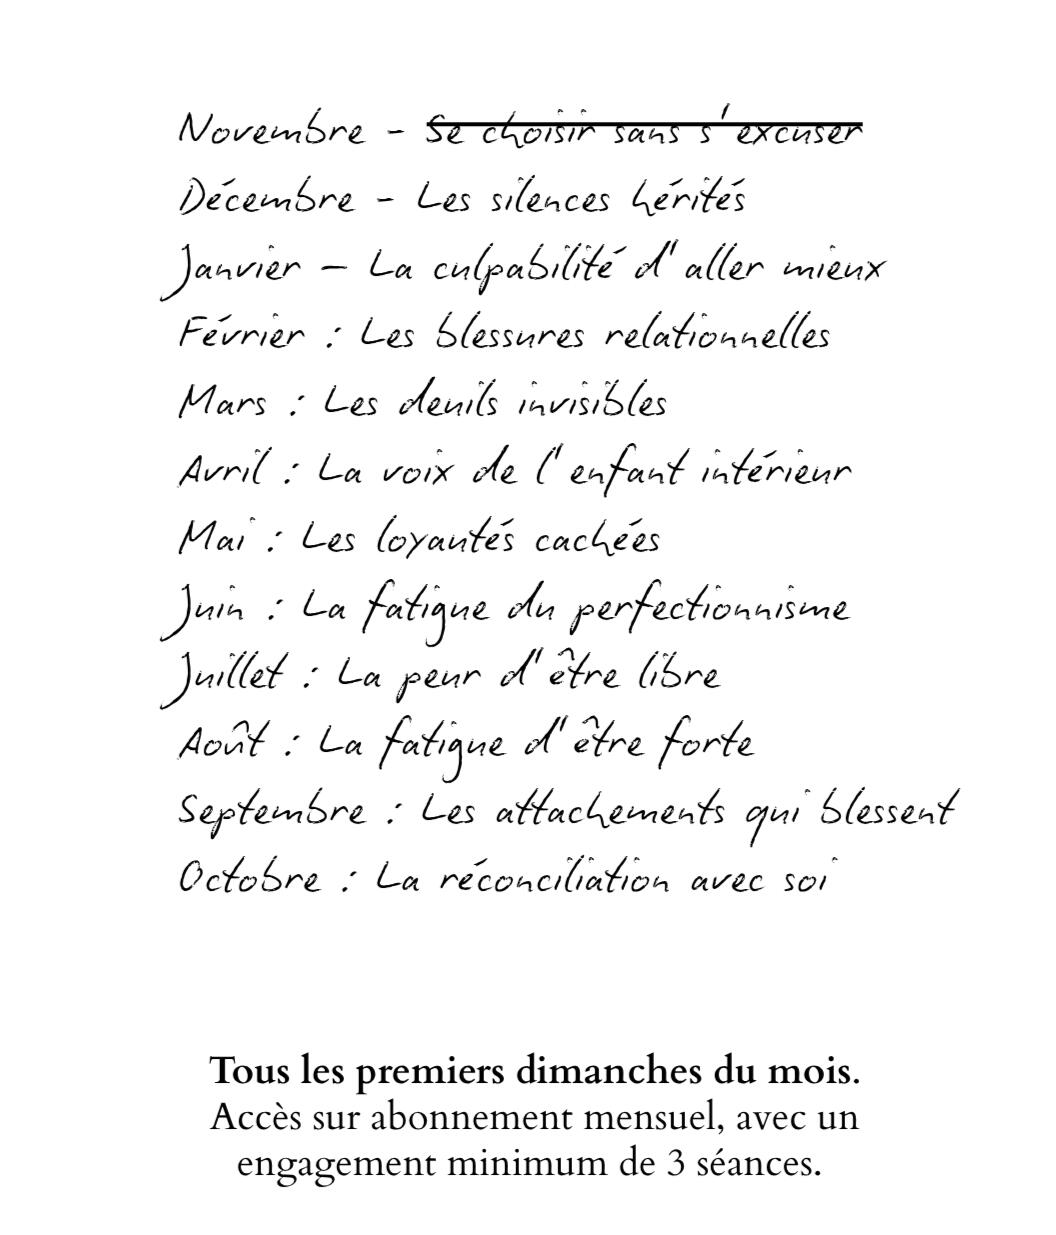 Novembre - Se choisir sans s'excuser
Décembre - Les silences hérités
Janvier – La culpabilité d'aller mieux
Février : Les blessures relationnelles
Mars : Les deuils invisibles
Avril : La voix de l'enfant intérieur
Mai : Les loyautés cachées
Juin : La fatigue du perfectionnisme
Juillet : La peur d'être libre
Août : La fatigue d'être forte
Septembre : Les attachements qui blessent
Octobre : La réconciliation avec soi
Tous les premiers dimanches du mois.
Accès sur abonnement mensuel, avec un
engagement minimum de 3 séances.